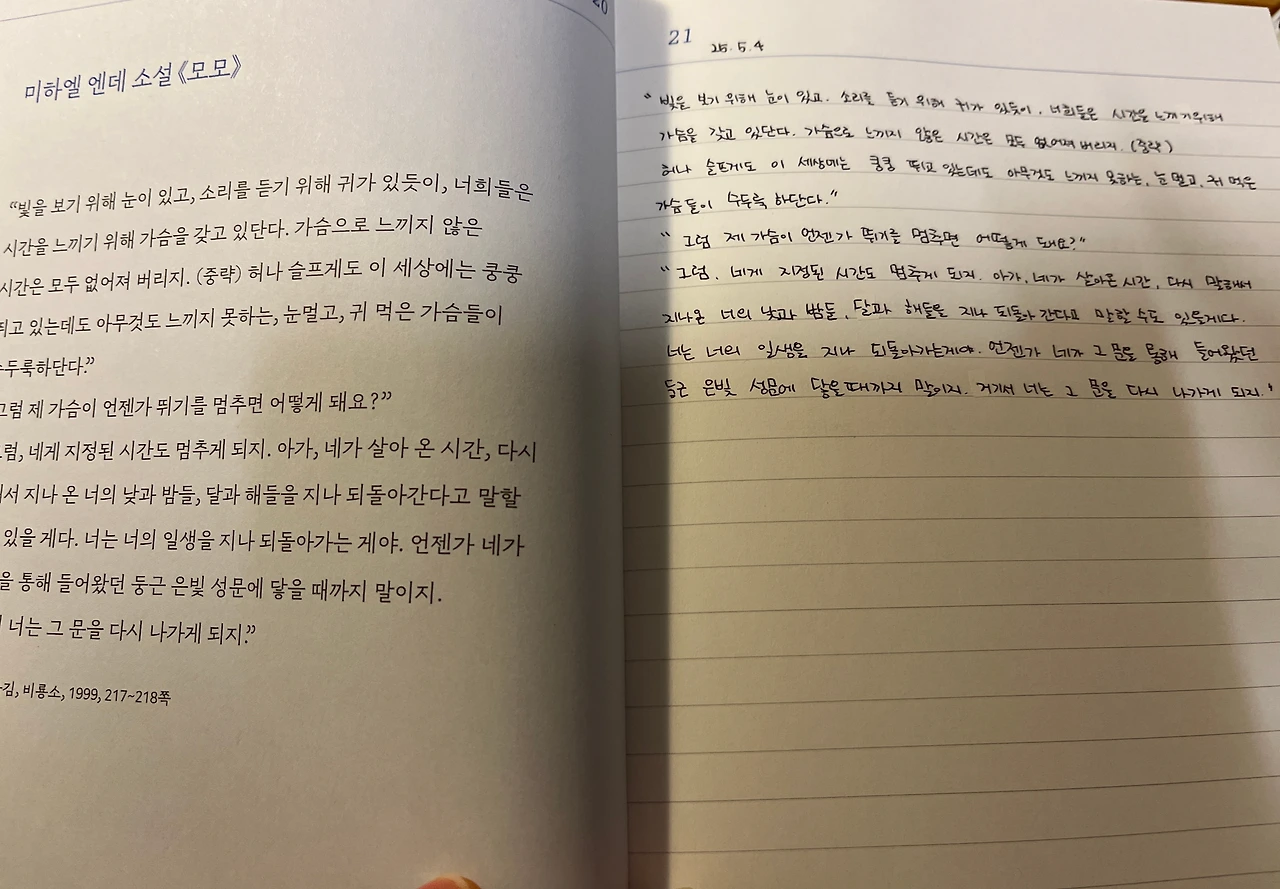 20
미하엘 엔데 소설 《모모》
“빛을 보기 위해 눈이 있고, 소리를 듣기 위해 귀가 있듯이, 너희들은
시간을 느끼기 위해 가슴을 갖고 있단다. 가슴으로 느끼지 않은
시간은 모두 없어져 버리지. (중략) 허나 슬프게도 이 세상에는 쿵쿵
뛰고 있는데도 아무것도 느끼지 못하는, 눈멀고, 귀 먹은 가슴들이
두룩하단다.”
그럼 제 가슴이 언젠가 뛰기를 멈추면 어떻게 돼요?”
럼, 네게 지정된 시간도 멈추게 되지. 아가, 네가 살아 온 시간, 다시
서 지나 온 너의 낮과 밤들, 달과 해들을 지나 되돌아간다고 말할
있을 게다. 너는 너의 일생을 지나 되돌아가는 게야. 언젠가 네가
을 통해 들어왔던 둥근 은빛 성문에 닿을 때까지 말이지.
너는 그 문을 다시 나가게 되지.”
김, 비룡소, 1999, 217~218쪽
21
25. 5. 4
“ 빛을 보기 위해 눈이 있고, 소리를 듣기 위해 귀가 있듯이, 너희들은 시간을 느끼기위해
가슴을 갖고 있단다. 가슴으로 느끼지 않은 시간은 모두 없어져 버리지. (중략)
허나 슬프게도 이 세상에는 쿵쿵 뛰고 있는데도 아무것도 느끼지 못하는, 눈 멀고, 귀 먹은
가슴들이 수두룩 하단다.”
“ 그럼 제 가슴이 언젠가 뛰기를 멈추면 어떻게 돼요?”
“ 그럼, 네게 지정된 시간도 멈추게 되지. 아가, 네가 살아온 시간, 다시 말해서
지나온 너의 낮과 밤들, 달과 해들을 지나 되돌아 간다고 말할 수도 있을게다.
너는 너의 일생을 지나 되돌아가는게야. 언젠가 네가 그 문을 통해 들어왔던
둥근 은빛 성문에 닿을때까지 말이지. 거기서 너는 그 문을 다시 나가게 되지.”